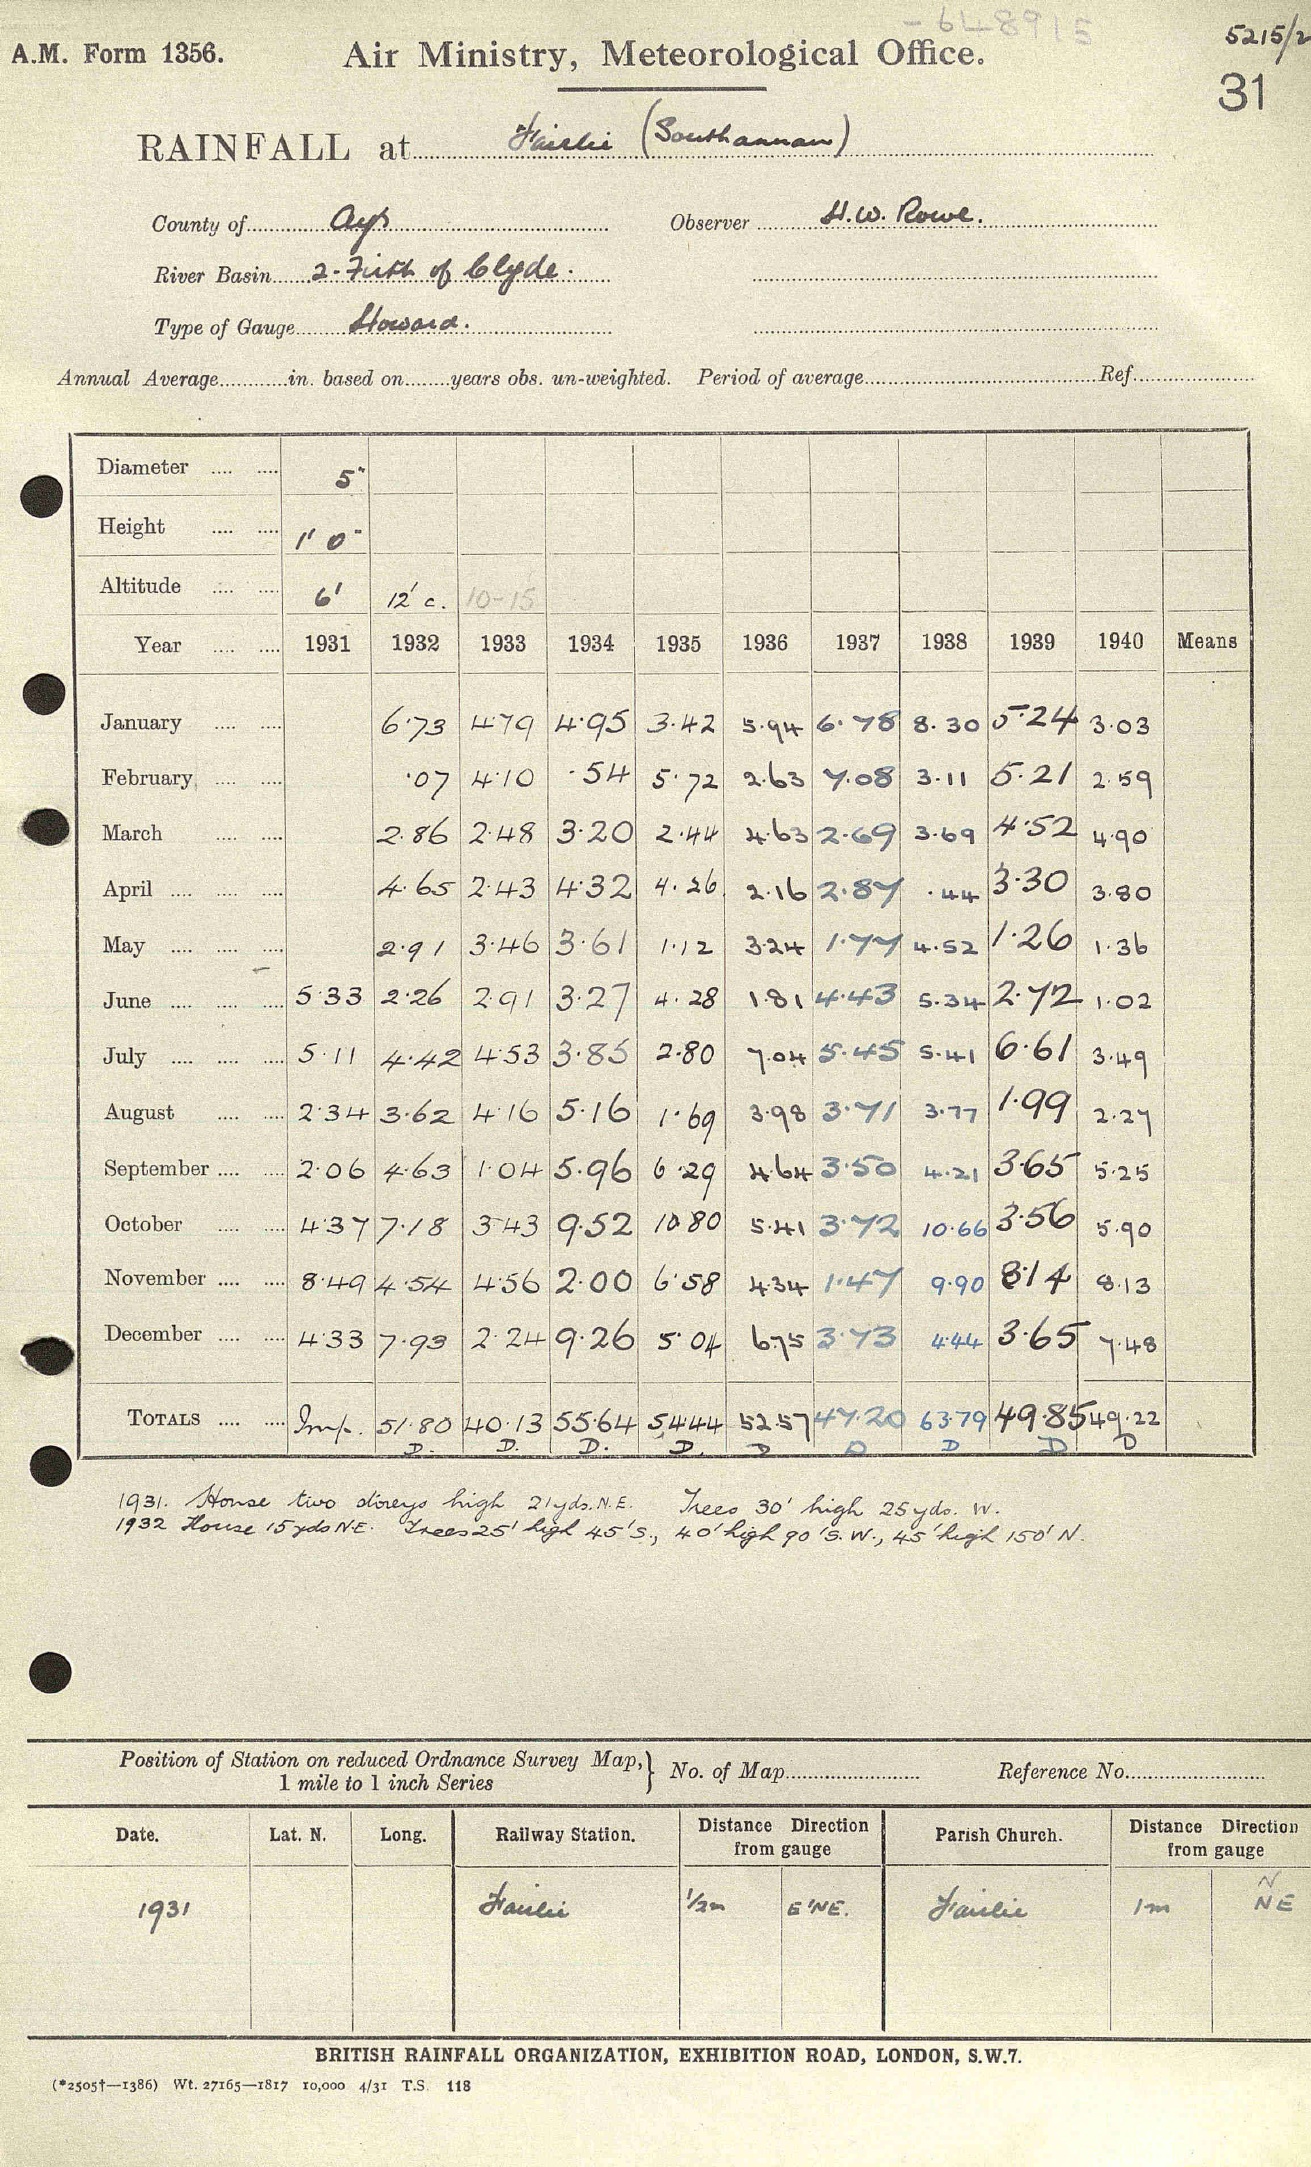 - 648915
5215/2
A.M. Form 1356. Air Ministry, Meteorological Office.
31
RAINFALL at Fairlie (Southannan)
County of Ayr Observer H.W. Rowe.
River Basin 2 - Firth of Clyde.
Type of Gauge Howard.
Annual Average in. based on years obs. un-weighted. Period of average Ref.
Diameter 5"
Height 1' 0"
Altitude 6' 12' c. 10-15
Year 1931 1932 1933 1934 1935 1936 1937 1938 1939 1940 Means
January 6.73 4.79 4.95 3.42 5.94 6.78 8.30 5.24 3.03
February .07 4.10 .54 5.72 2.63 7.08 3.11 5.21 2.59
March 2.86 2.48 3.20 2.44 4.63 2.69 3.69 4.52 4.90
April 4.65 2.43 4.32 4.26 2.16 2.87 .44 3.30 3.80
May 2.91 3.46 3.61 1.12 3.24 1.77 4.52 1.26 1.36
June 5.33 2.26 2.91 3.27 4.28 1.81 4.43 5.34 2.72 1.02
July 5.11 4.42 4.53 3.85 2.80 7.04 5.45 5.41 6.61 3.49
August 2.34 3.62 4.16 5.16 1.69 3.98 3.71 3.77 1.99 2.27
September 2.06 4.63 1.04 5.96 6.29 4.64 3.50 4.21 3.65 5.25
October 4.37 7.18 3.43 9.52 10.80 5.41 3.72 10.66 3.56 5.90
November 8.49 4.54 4.56 2.00 6.58 4.34 1.47 9.90 8.14 8.13
December 4.33 7.93 2.24 9.26 5.04 6.75 3.73 4.44 3.65 7.48
TOTALS Imp. 51.80 40.13 55.64 54.44 52.57 47.20 63.79 49.85 49.22
D. D. D. D. D D D D D
1931. House two storeys high 21yds. N.E. Trees 30' high 25yds. W.
1932 House 15yds N.E. Trees 25' high 45' S., 40' high 90' S.W., 45' high 150' N.
Position of Station on reduced Ordnance Survey Map, 1 mile to 1 inch Series } No. of Map Reference No.
Date. Lat. N. Long. Railway Station. Distance from gauge Direction Parish Church. Distance from gauge Direction
N
1931 Fairlie 1/2m E'NE. Fairlie 1m NE
BRITISH RAINFALL ORGANIZATION, EXHIBITION ROAD, LONDON, S.W.7.
(*2505†—1386) Wt. 27165—1817 10,000 4/31 T.S. 118